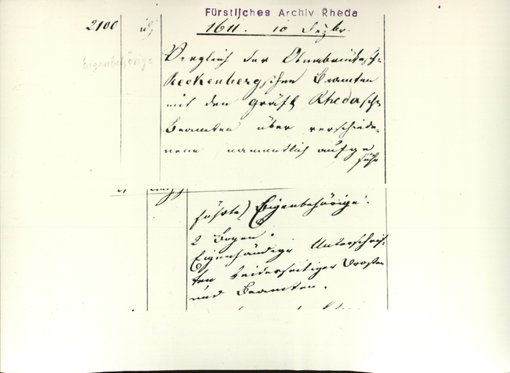 Fürstliches Archiv Rheda
2100
1611. 10 Dezbr.
Eigenbehörige
Vergleich der Osnabrückisch
Reckenbergischen Beamten
mit den Gräfl. Rhedasch
Beamten über verschie-
nene namentlich aufge
führ
führte) Eigenbehörige.
2 Bogen.
Eigenhändige Unterschrif-
ten beiderseitiger Drosten
und Beamten.